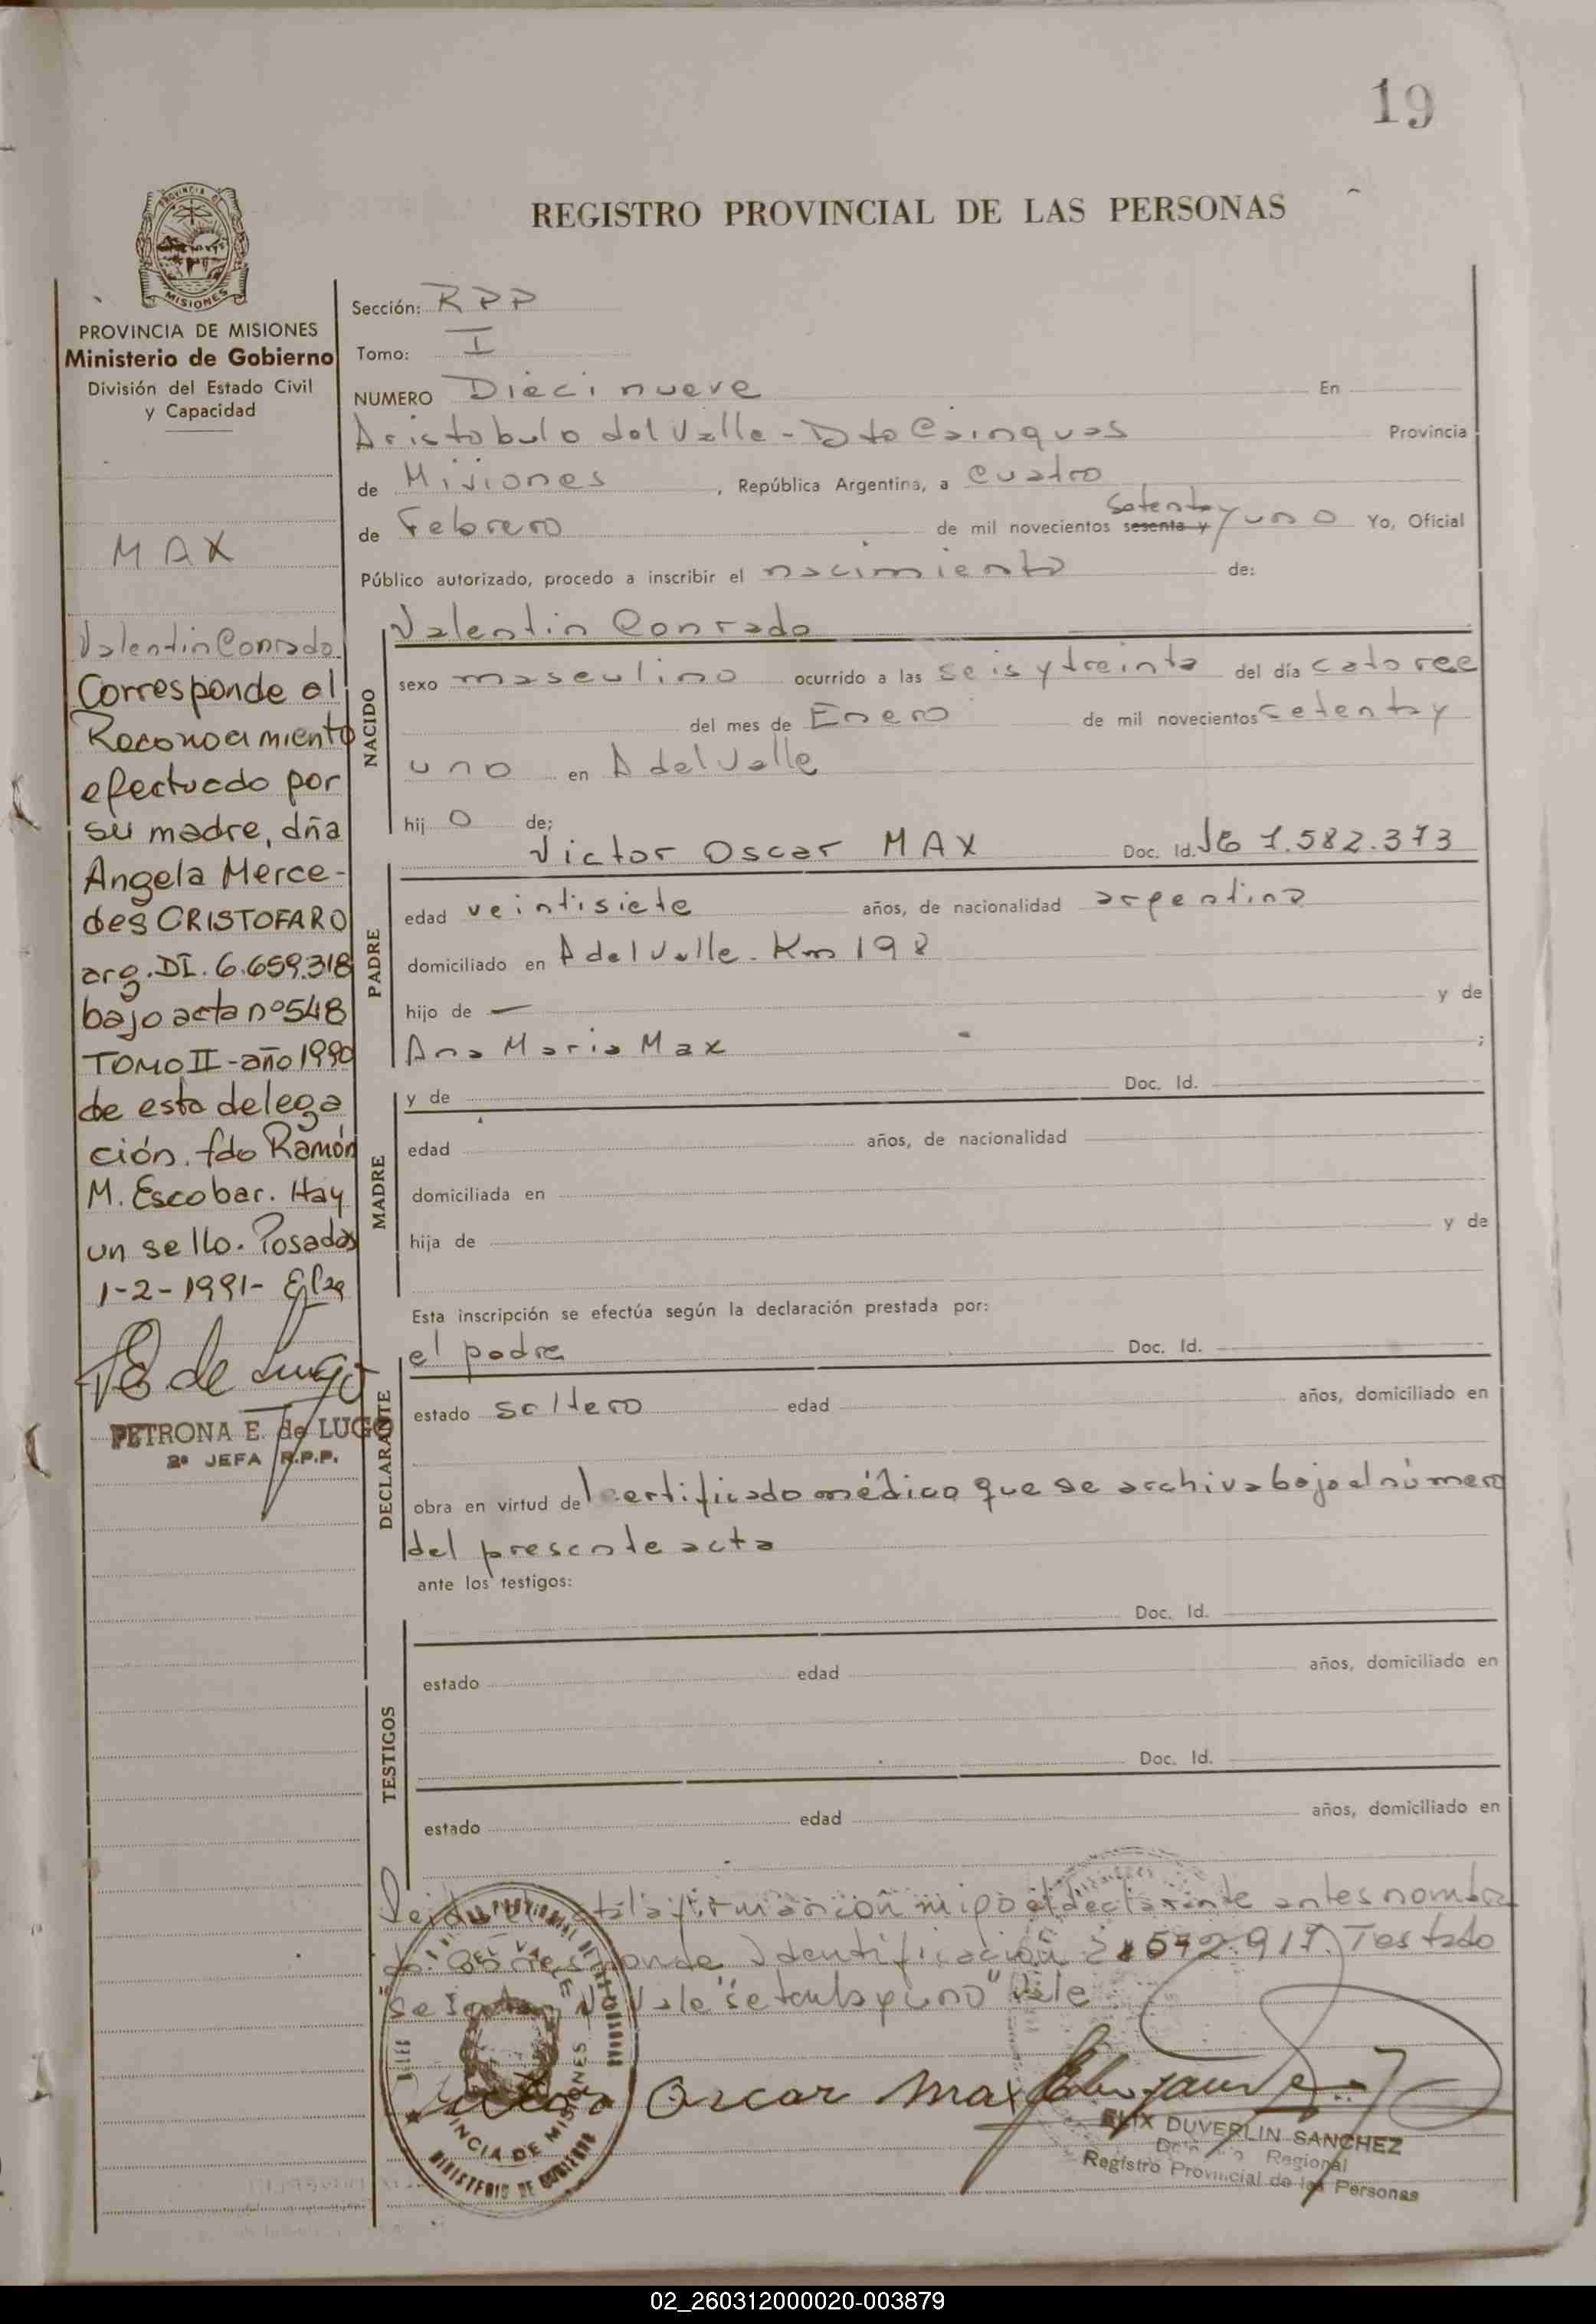 19
REGISTRO PROVINCIAL DE LAS PERSONAS
PROVINCIA DE
MISIONES
PROVINCIA DE MISIONES
Ministerio de Gobierno
División del Estado Civil
y Capacidad
MAX
Valentin Conrado
Corresponde al
Reconocimiento
efectuado por
su madre, dña
Angela Merce-
des CRISTOFARO
arg. DI. 6.659.318
bajo acta nº 548
TOMO II - año 1990
de esta delega
ción. fdo Ramón
M. Escobar. Hay
un sello. Posadas
1-2-1991-
E de Lugo
PETRONA E. de LUGO
2ª JEFA R.P.P.
Sección: RPP
Tomo: I
NUMERO Dieci nueve En
Aristobulo del Valle - Dto Cainguas Provincia
de Misiones , República Argentina, a cuatro
de Febrero de mil novecientos sesenta y setenta y uno Yo, Oficial
Público autorizado, procedo a inscribir el nacimiento de:
NACIDO
Valentin Conrado
sexo masculino ocurrido a las seis y treinta del día catorce
del mes de Enero de mil novecientos setenta y
uno en A del Valle
hij o de;
PADRE
Victor Oscar MAX Doc. Id. 7.582.373
edad veintisiete años, de nacionalidad argentina
domiciliado en A del Valle. Km 198
hijo de — y de
Ana Maria Max ;
MADRE
y de Doc. Id.
edad años, de nacionalidad
domiciliada en
hija de y de
Esta inscripción se efectúa según la declaración prestada por:
DECLARANTE
el padre Doc. Id.
estado soltero edad años, domiciliado en
obra en virtud del certificado médico que se archiva bajo el número
del presente acta
ante los testigos:
TESTIGOS
Doc. Id.
estado edad años, domiciliado en
Doc. Id.
estado edad años, domiciliado en
Leida el acta la firman con migo el declarante antes nombra
do. Corresponde Identificacion 572.917. Testado
"sesenta y" No Vale "setenta y uno" Vale
Victor Oscar Max
PROVINCIA DE MISIONES
MINISTERIO DE GOBIERNO
ELIX DUVERLIN SANCHEZ
Regional
Registro Provincial de las Personas
02_260312000020-003879